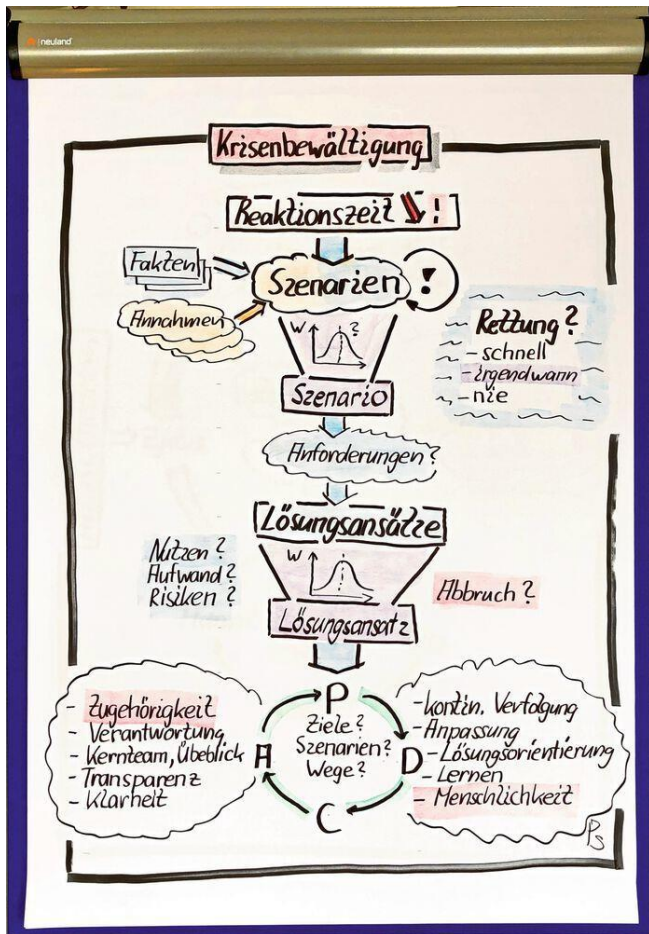 neuland
Krisenbewältigung
Reaktionszeit !
Fakten
Szenarien !
Annahmen
W ?
Rettung?
- schnell
- irgendwann
- nie
Szenario
Anforderungen?
Lösungsansätze
Nutzen?
Aufwand?
Risiken?
W
Abbruch?
Lösungsansatz
- Zugehörigkeit
- Verantwortung
- Kernteam, Übeblick
- Transparenz
- Klarheit
P
Ziele?
Szenarien?
Wege?
A
D
C
- kontin. Verfolgung
- Anpassung
- Lösungsorientierung
- Lernen
- Menschlichkeit
Ps